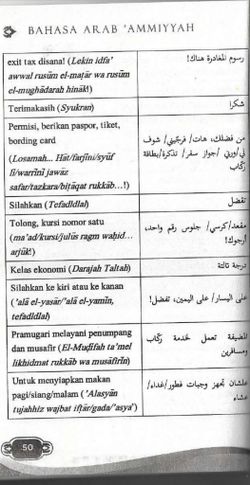 BAHASA ARAB 'AMMIYYAH
exit tax disana! (Lekin idfa'
awwal rusūm el-maṭār wa rusūm
el-mughādarah hināk!)
رسوم المغادرة هناك!
Terimakasih (Syukran)
شكرا
Permisi, berikan paspor, tiket,
bording card
(Losamah... Hāt/farjīni/syūf
lī/warrīnī jawāz
safar/tazkara/biṭāqat rukkāb...!)
من فضلك، هات/ فرجيني/ شوف
لي/وريني /جواز سفر/ تذكرة/بطاقة
ركاب...!
Silahkan (Tefaḍḍal)
تفضل
Tolong, kursi nomor satu
(ma'ad/kursi/julūs ragm waḥid...
arjūk!)
مقعد/كرسي/ جلوس رقم واحد،
أرجوك!
Kelas ekonomi (Darajah Taltah)
درجة ثالثة
Silahkan ke kiri atau ke kanan
('alā el-yasār/'alā el-yamīn,
tefaḍḍal)
على اليسار/ على اليمين، تفضل!
Pramugari melayani penumpang
dan musafir (El-Muḍīfah ta'mel
likhidmat rukkāb wa musāfirīn)
المضيفة تعمل لخدمة ركّاب
ومسافرين
Untuk menyiapkan makan
pagi/siang/malam ('Alasyān
tujahhiz wajbat ifṭār/gada/'asya')
علشان تجهز وجبات فطور/غداء/
عشاء
50